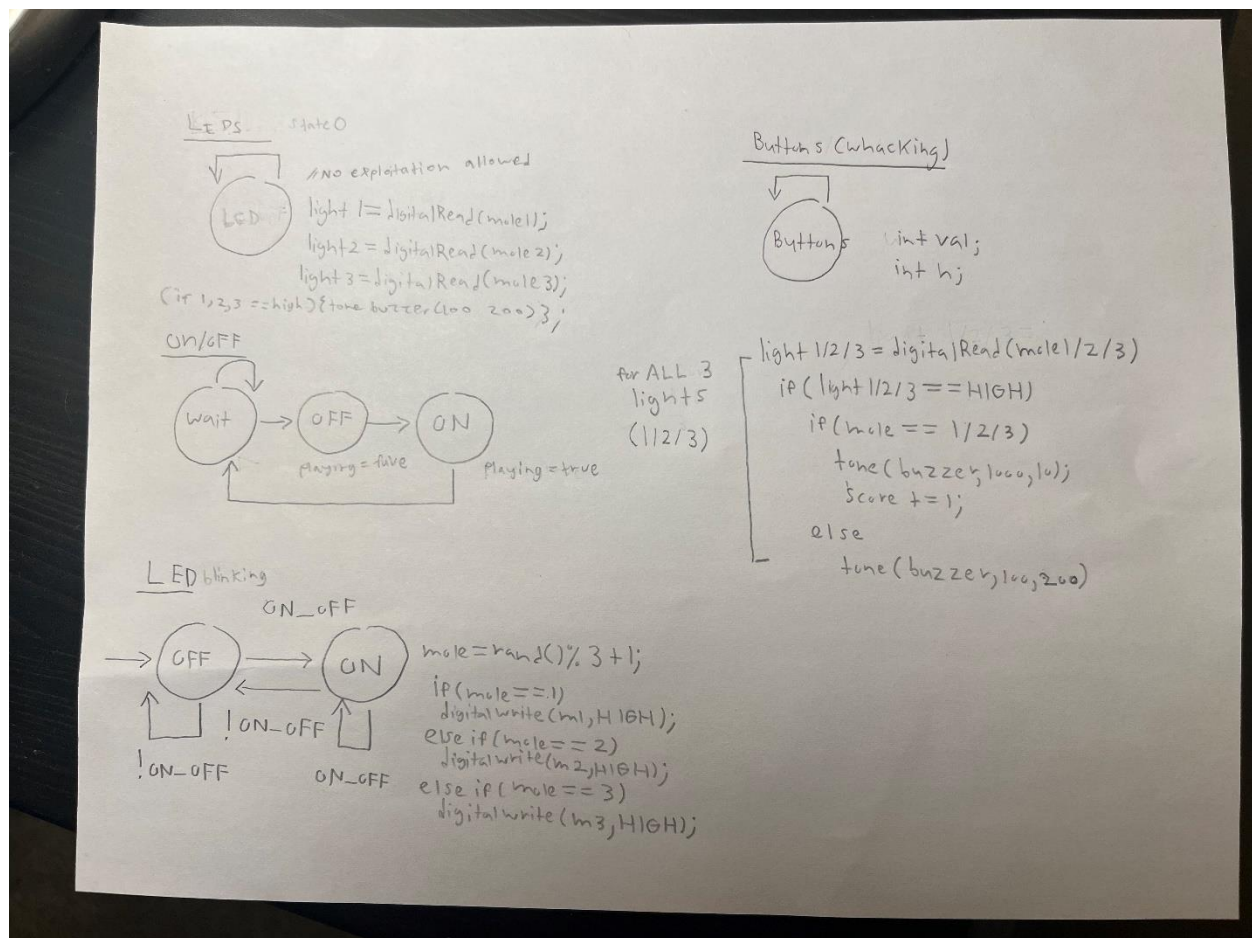 LEDS state 0
//NO exploitation allowed
LED
light 1 = digitalRead(mole1);
light2 = digitalRead(mole 2);
light 3 = digitalRead(mole 3);
(if 1,2,3 == high) { tone buzzer(100 200) };
ON/OFF
wait
OFF
ON
playing =
playing = true
LED blinking
ON_OFF
OFF
ON
!ON_OFF
!ON_OFF
ON_OFF
mole = rand() % 3 + 1;
if(mole == 1)
digitalwrite(m1, HIGH);
else if(mole == 2)
digitalwrite(m2, HIGH);
else if(mole == 3)
digitalwrite(m3, HIGH);
Buttons (whacking)
Buttons
int val;
int h;
for ALL 3
lights
(1/2/3)
light 1/2/3 = digitalRead(mole1/2/3)
if(light 1/2/3 == HIGH)
if(mole == 1/2/3)
tone(buzzer, 1000, 10);
score += 1;
else
tone(buzzer, 100, 200)